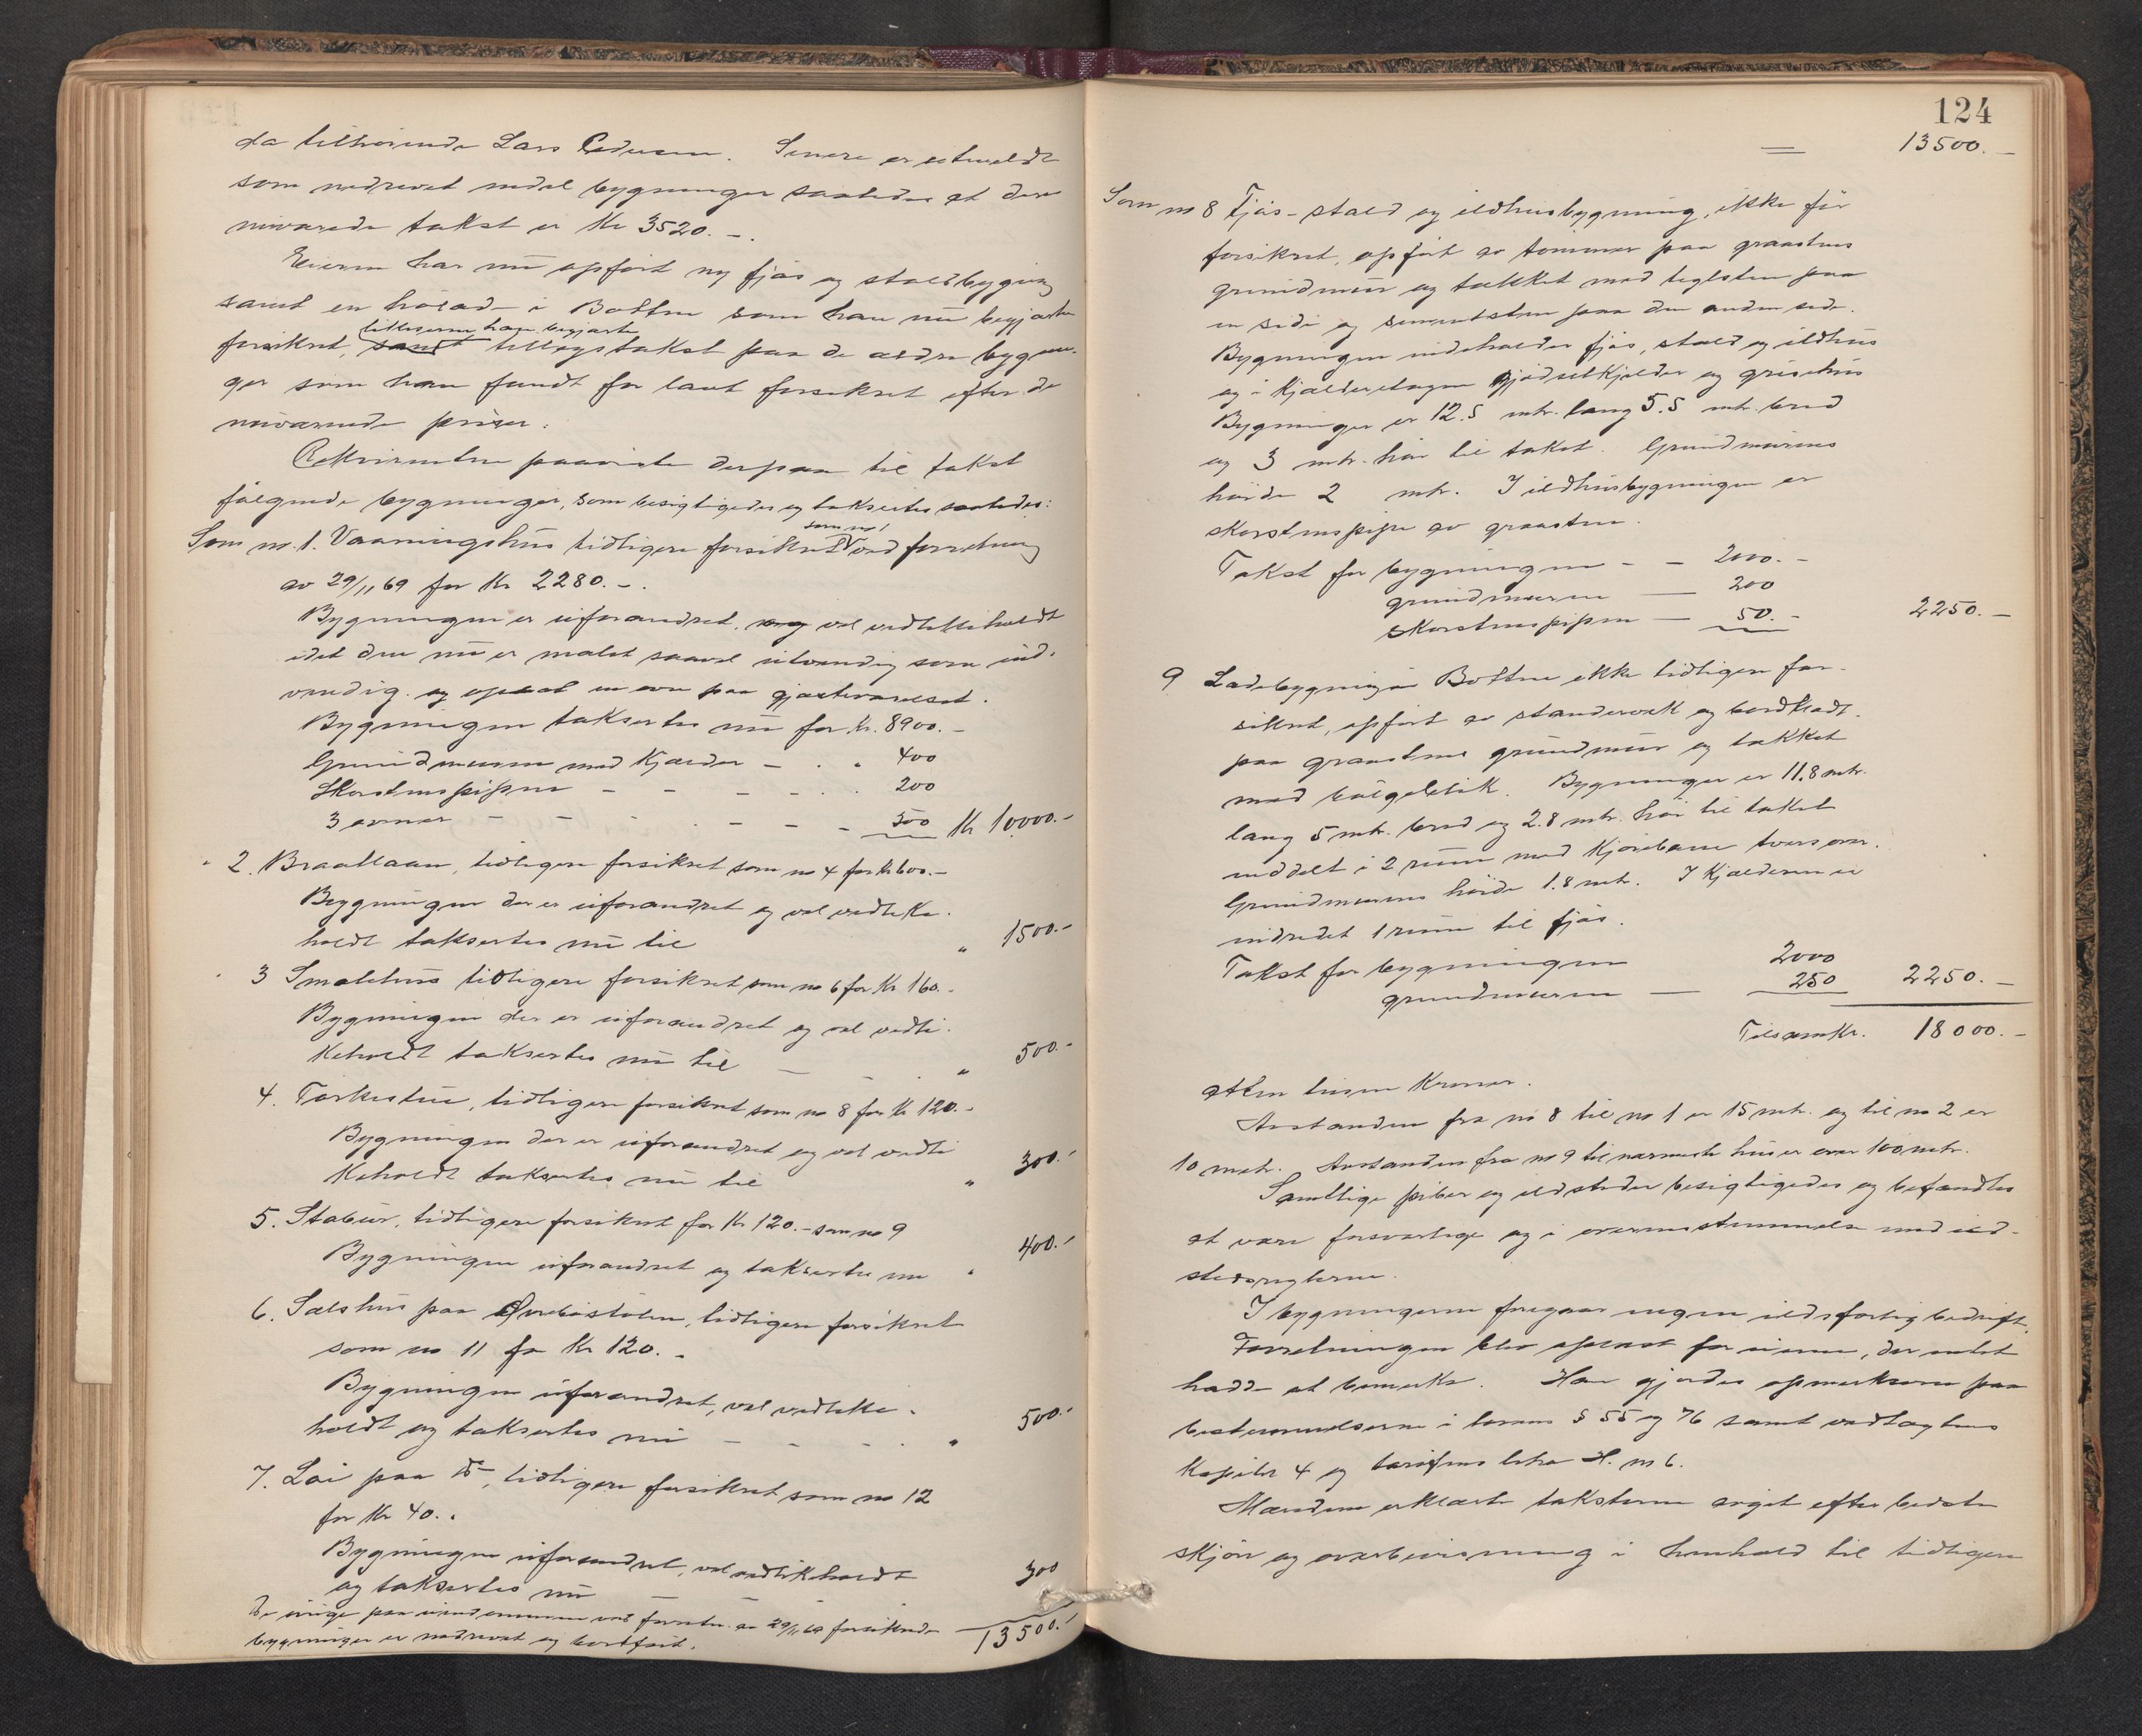 da tilhørende Lars Pedersen. Senere er utmeldt
som nedrevet endel bygninger saaledes at den
nuværende takst er Kr 3520.-.
Eieren har nu opført ny fjøs og staldbygning
samt en hølade i Botten som han nu begjærte
forsikret, samt tillægstakst paa de ældre bygnin-
tillikemed han begjærte
ger som han fandt for lavt forsikret efter de
nuværende priser.
Rekvirenten paaviste derpaa til takst
følgende bygninger, som besigtigedes og taksertes saaledes:
Som no. 1. Vaaningshus tidligere forsikret som no 1 ved forretning
av 29/11 69 for Kr 2280.-.
Bygningen er uforandret, og vel vedlikeholdt
idet den nu er malet saavel utvendig som ind-
vendig. og opsat en ovn paa gjesteværelset.
Bygningen taksertes nu for Kr. 8900.-
Grundmuren med Kjælder - . . 400
Skorstenspipen - - - - . . 200
3 ovner - - - . - - - 500 Kr 10000.-
2. Braatlaan, tidligere forsikret som no 4 for Kr 600.-
Bygningen der er uforandret og vel vedlike-
holdt taksertes nu til " 1500.-
3 Smalehus tidligere forsikret som no 6 for Kr 160.-
Bygningen der er uforandret og vel vedli-
keholdt taksertes nu til - - . " 500.-
4. Tørkestue, tidligere forsikret som no 8 for Kr 120.-
Bygningen der er uforandret og vel vedli
keholdt taksertes nu til " 300.-
5. Stabur, tidligere forsikret for Kr 120.- som no 9
Bygningen uforandret og taksertes nu " 400.-
6. Sælshus paa Øvrebøstølen, tidligere forsikret
som no 11 for Kr 120.-
Bygningen uforandret, vel vedlike-
holdt og taksertes nu - - . . " 500.-
7. Løi paa do, tidligere forsikret som no 12
for Kr 40..
Bygningen uforandret, vel vedlikeholdt
og taksertes nu 300
De øvrige paa eiendommen ved forretn. av 29/11 69 forsikrede
bygninger er nedrevet og bortført. 13500.-
124
= 13500.-
Som no 8 Fjøs-stald og ildhusbygning, ikke før
forsikret, opført av tømmer paa graastens
grundmur og tækket med teglsten paa
en side og sementsten paa den anden side.
Bygningen indeholder fjøs, stald og ildhus
og i Kjælderetagen gjødselkjælder og grisehus
Bygningen er 12.5 mtr. lang 5.5 mtr. bred
og 3 mtr. høi til taket. Grundmurens
høide 2 mtr. I ildhusbygningen er
skorstenspipe av graasten.
Takst for bygningen - - 2000.-
grundmuren - 200
skorstenspipen - 50.- 2250.-
9 Ladebygning i Botten ikke tidligere for-
sikret, opført av stenderverk og bordklædt
paa graastens grundmur og tækket
med bølgeblik. Bygningen er 11.8 mtr.
lang 5 mtr. bred og 2.8 mtr. høi til taket
inddelt i 2 rum med Kjørebane tversover.
Grundmurens høide 1.8 mtr. I Kjælderen er
indredet 1 rum til fjøs.
Takst for bygningen 2000
grundmuren - 250 2250.-
Tilsam Kr. 18000.-
atten tusen Kroner.
Avstanden fra no 8 til no 1 er 15 mtr. og til no 2 er
10 metr. Avstanden fra no 9 til nærmeste hus er over 100 mtr.
Samtlige piber og ildsteder besigtigedes og befandtes
at være forsvarlige og i overensstemmelse med ild-
stedsreglerne.
I bygningerne foregaar ingen ildsfarlig bedrift.
Forretningen blev oplæst for eieren, der intet
hadde at bemerke. Han gjordes opmerksom paa
bestemmelserne i lovens § 55 og 76 samt vedtægtens
Kapitel 4 og tariffens litra H. no 6.
Mændene erklærte taksterne avgit efter bedste
skjøn og overbevisning i henhold til tidligere